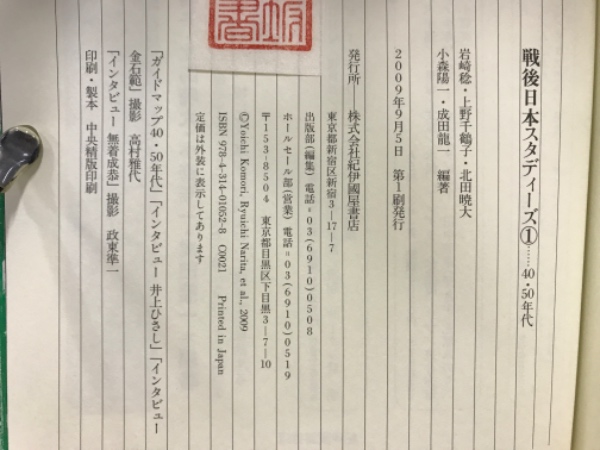 戦後日本スタディーズ①……40・50年代
岩崎稔・上野千鶴子・北田暁大
小森陽一・成田龍一 編著
2009年9月5日 第1刷発行
発行所 株式会社紀伊國屋書店
東京都新宿区新宿3—17—7
出版部(編集) 電話=03(6910)0508
ホールセール部(営業) 電話=03(6910)0519
〒153-8504 東京都目黒区下目黒3—7—10
©Yoichi Komori, Ryuichi Narita, et al., 2009
ISBN 978-4-314-01052-8 C0021 Printed in Japan
定価は外装に表示してあります
「ガイドマップ40・50年代」「インタビュー 井上ひさし」「インタビュー
金石範」撮影 高村雅代
「インタビュー 無着成恭」撮影 政東準一
印刷・製本 中央精版印刷